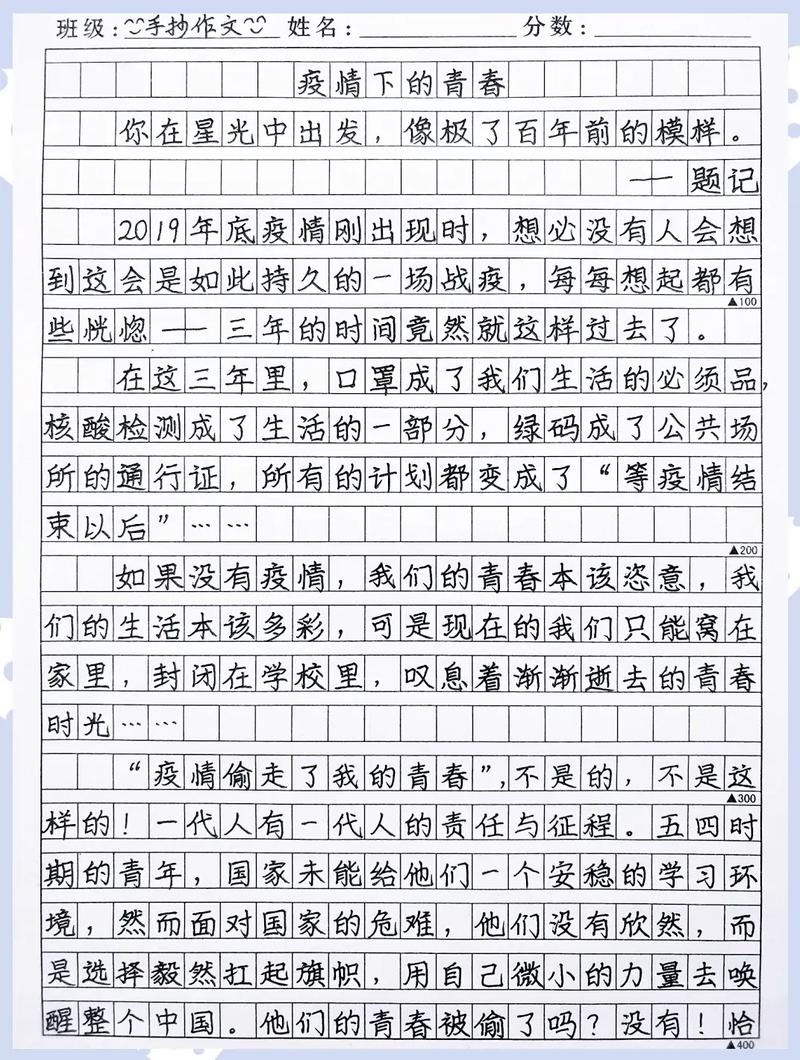 班级：手抄作文 姓名：＿＿＿＿ 分数：＿＿＿＿
疫情下的青春
你在星光中出发，像极了百年前的模样。
——题记
2019年底疫情刚出现时，想必没有人会想
到这会是如此持久的一场战疫，每每想起都有
▲100
些恍惚——三年的时间竟然就这样过去了。
在这三年里，口罩成了我们生活的必须品，
核酸检测成了生活的一部分，绿码成了公共场
所的通行证，所有的计划都变成了“等疫情结
束以后”……
▲200
如果没有疫情，我们的青春本该恣意，我
们的生活本该多彩，可是现在的我们只能窝在
家里，封闭在学校里，叹息着渐渐逝去的青春
时光……
“疫情偷走了我的青春”，不是的，不是这
▲300
样的！一代人有一代人的责任与征程。五四时
期的青年，国家未能给他们一个安稳的学习环
境，然而面对国家的危难，他们没有欣然，而
是选择毅然扛起旗帜，用自己微小的力量去唤
醒整个中国。他们的青春被偷了吗？没有！恰
▲400